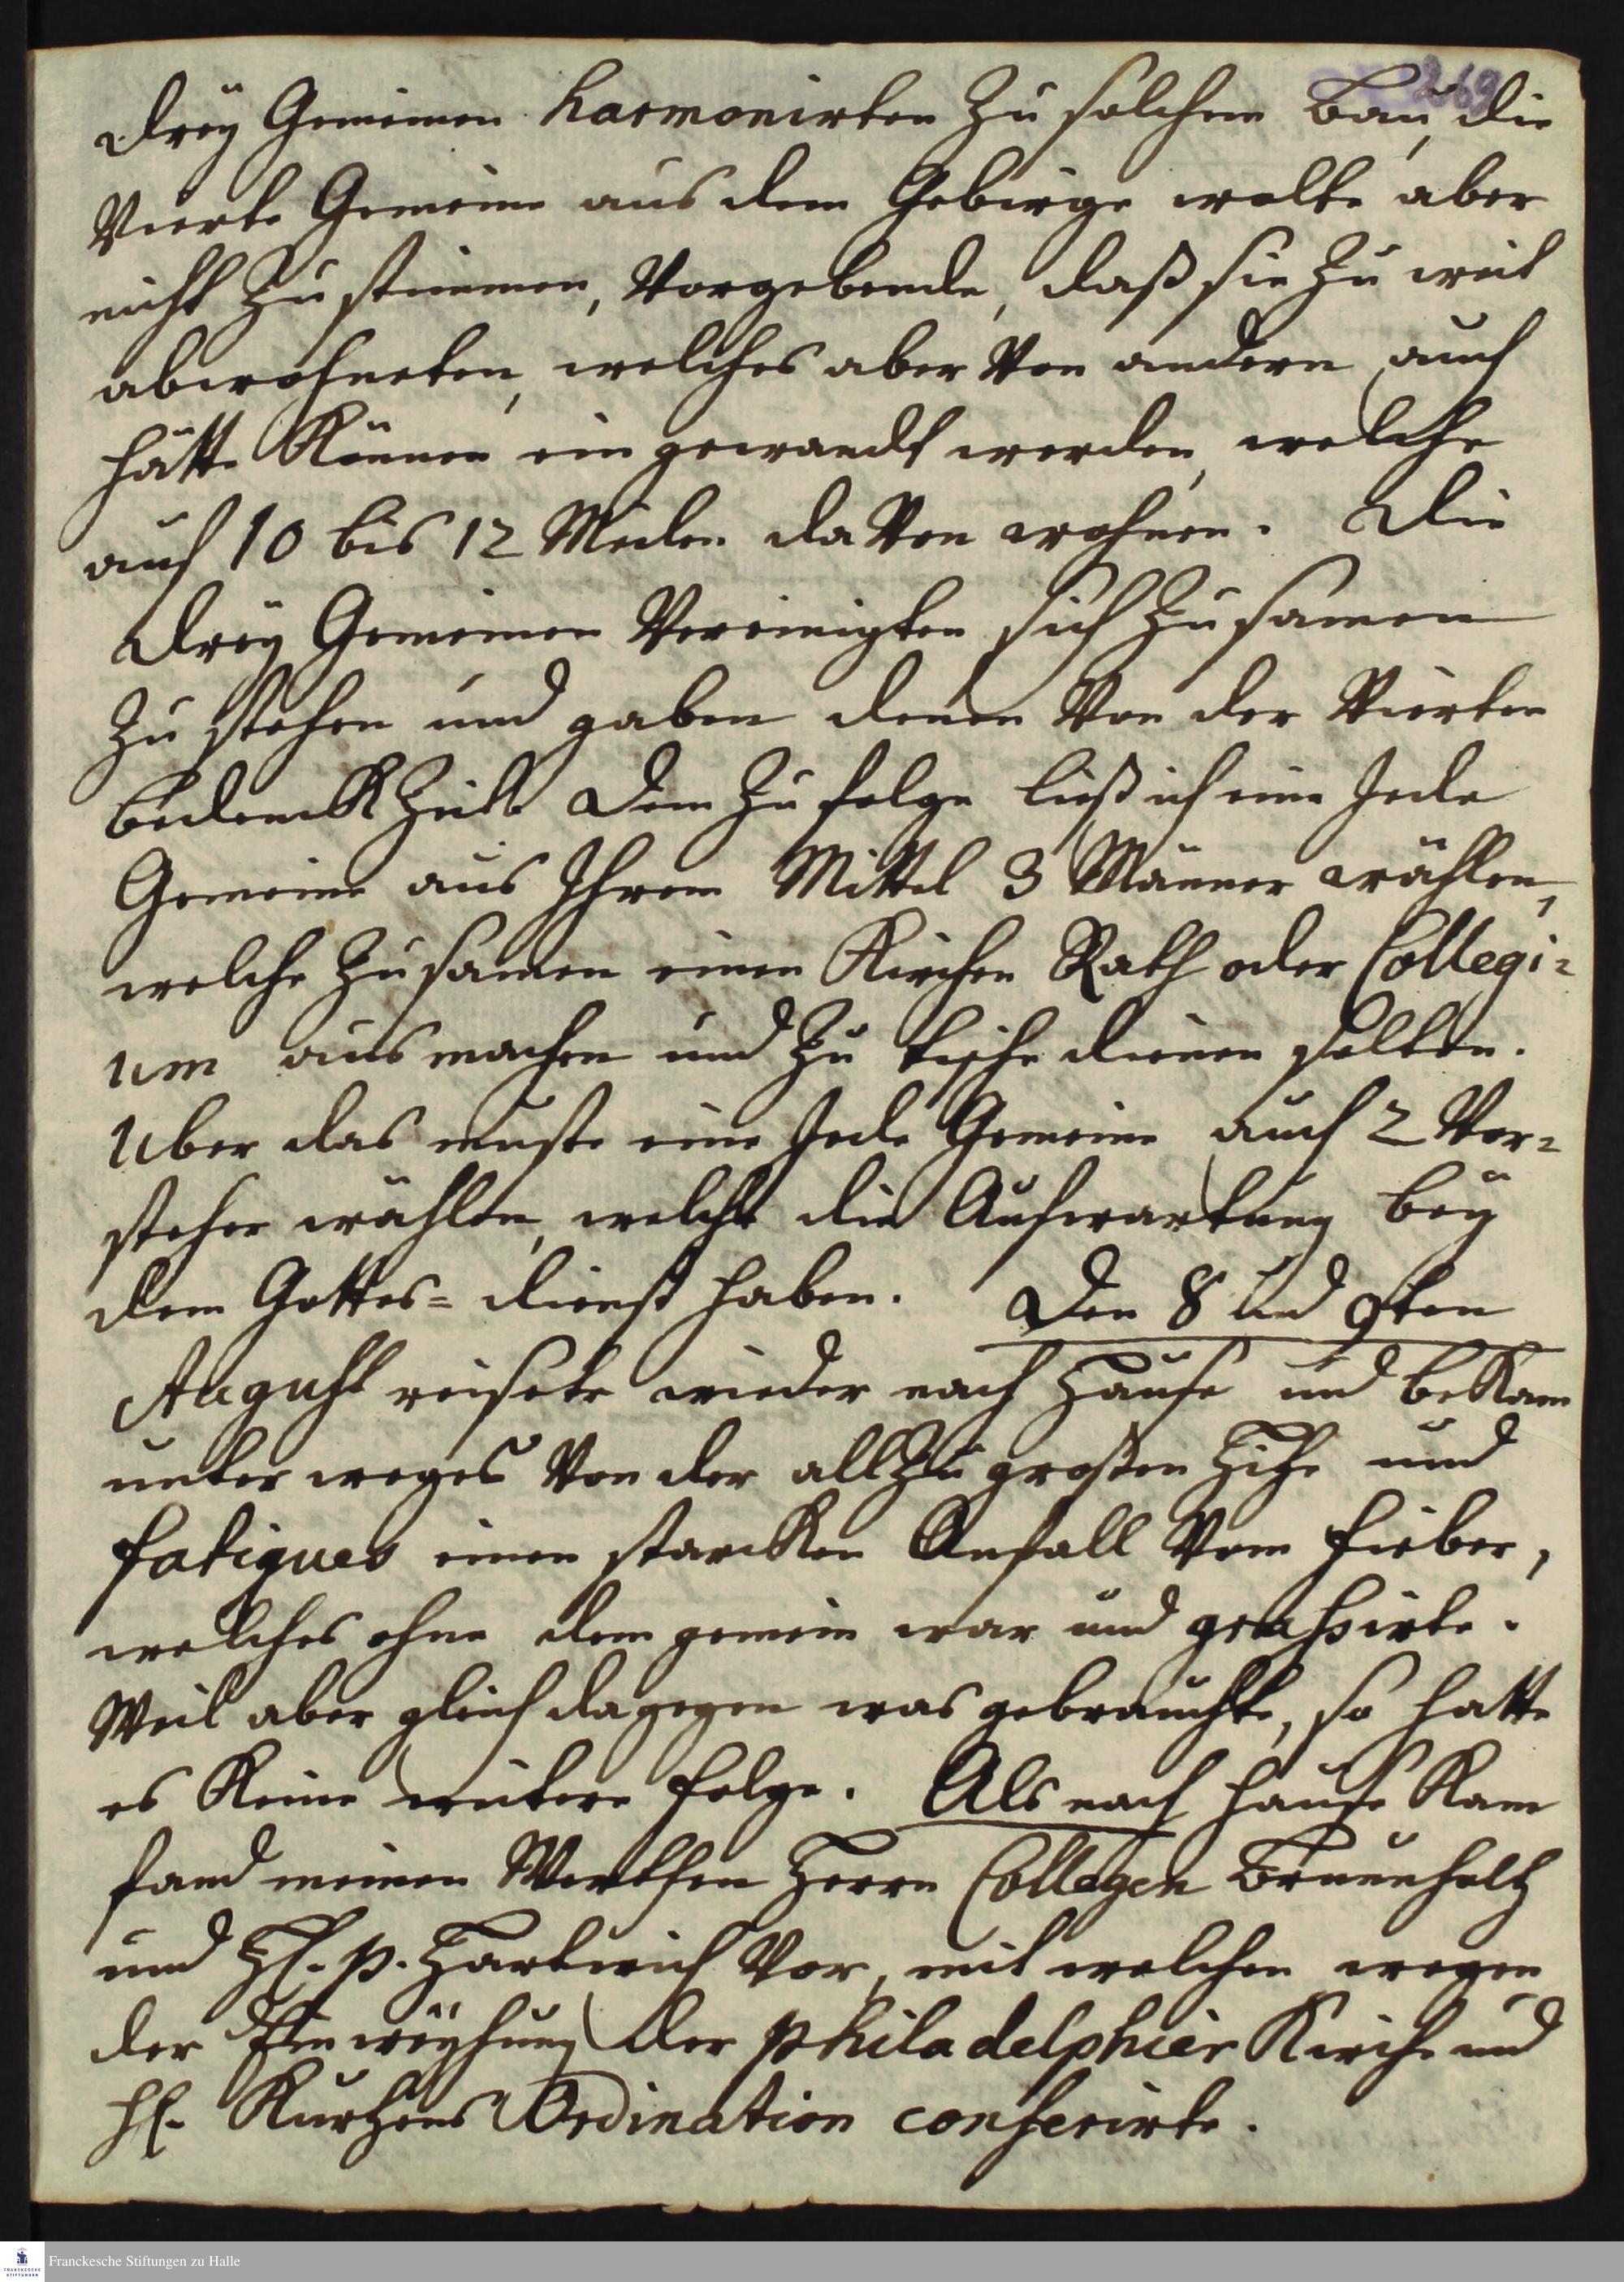 269
drey Gemeinen harmonirten zu solchem Bau, die
Vierte Gemeine aus dem Gebirge wolte aber
nicht zu stimmen, Vorgebende, daß sie zu weit
abwohneten, welches aber Von andern auch
hätte Können ein gewandt werden, welche
auf 10 bis 12 Meilen da Von wohnen. Die
drey Gemeinen Vereinigten sich zu samen
zu stehen und gaben denen Von der Vierten
bedenckZeit. Dem zu folge ließ ich eine Jede
Gemeine aus Ihrem Mittel 3 Männer wählen,
welche zu samen einen Kirchen Rath oder Collegi=
um aus machen und zu tische dienen solten.
Uber das muste eine Jede Gemeine auch 2 Vor=
steher wählen, welche die Aufwartung bey
dem Gottes= dienst haben. Den 8 und 9ten
August reisete wieder nach Hause und beKam
unter weges Von der allzu großen Hitze und
fatigues einen starcken Anfall Vom fieber,
welches ohne dem gemein war und grassirte.
Weil aber gleich dagegen was gebrauchte, so hatte
es Keine weitere folge. Als nach Hause Kam
fand meinen Werthen Herrn Collegen Brunnholtz
und H. P. Hartwich Vor, mit welchen wegen
der Einweyhung der philadelphier Kirche und
H. Kurtzens Ordination conferirte.
Franckesche Stiftungen zu Halle
FRANCKESCHE
STIFTUNGEN